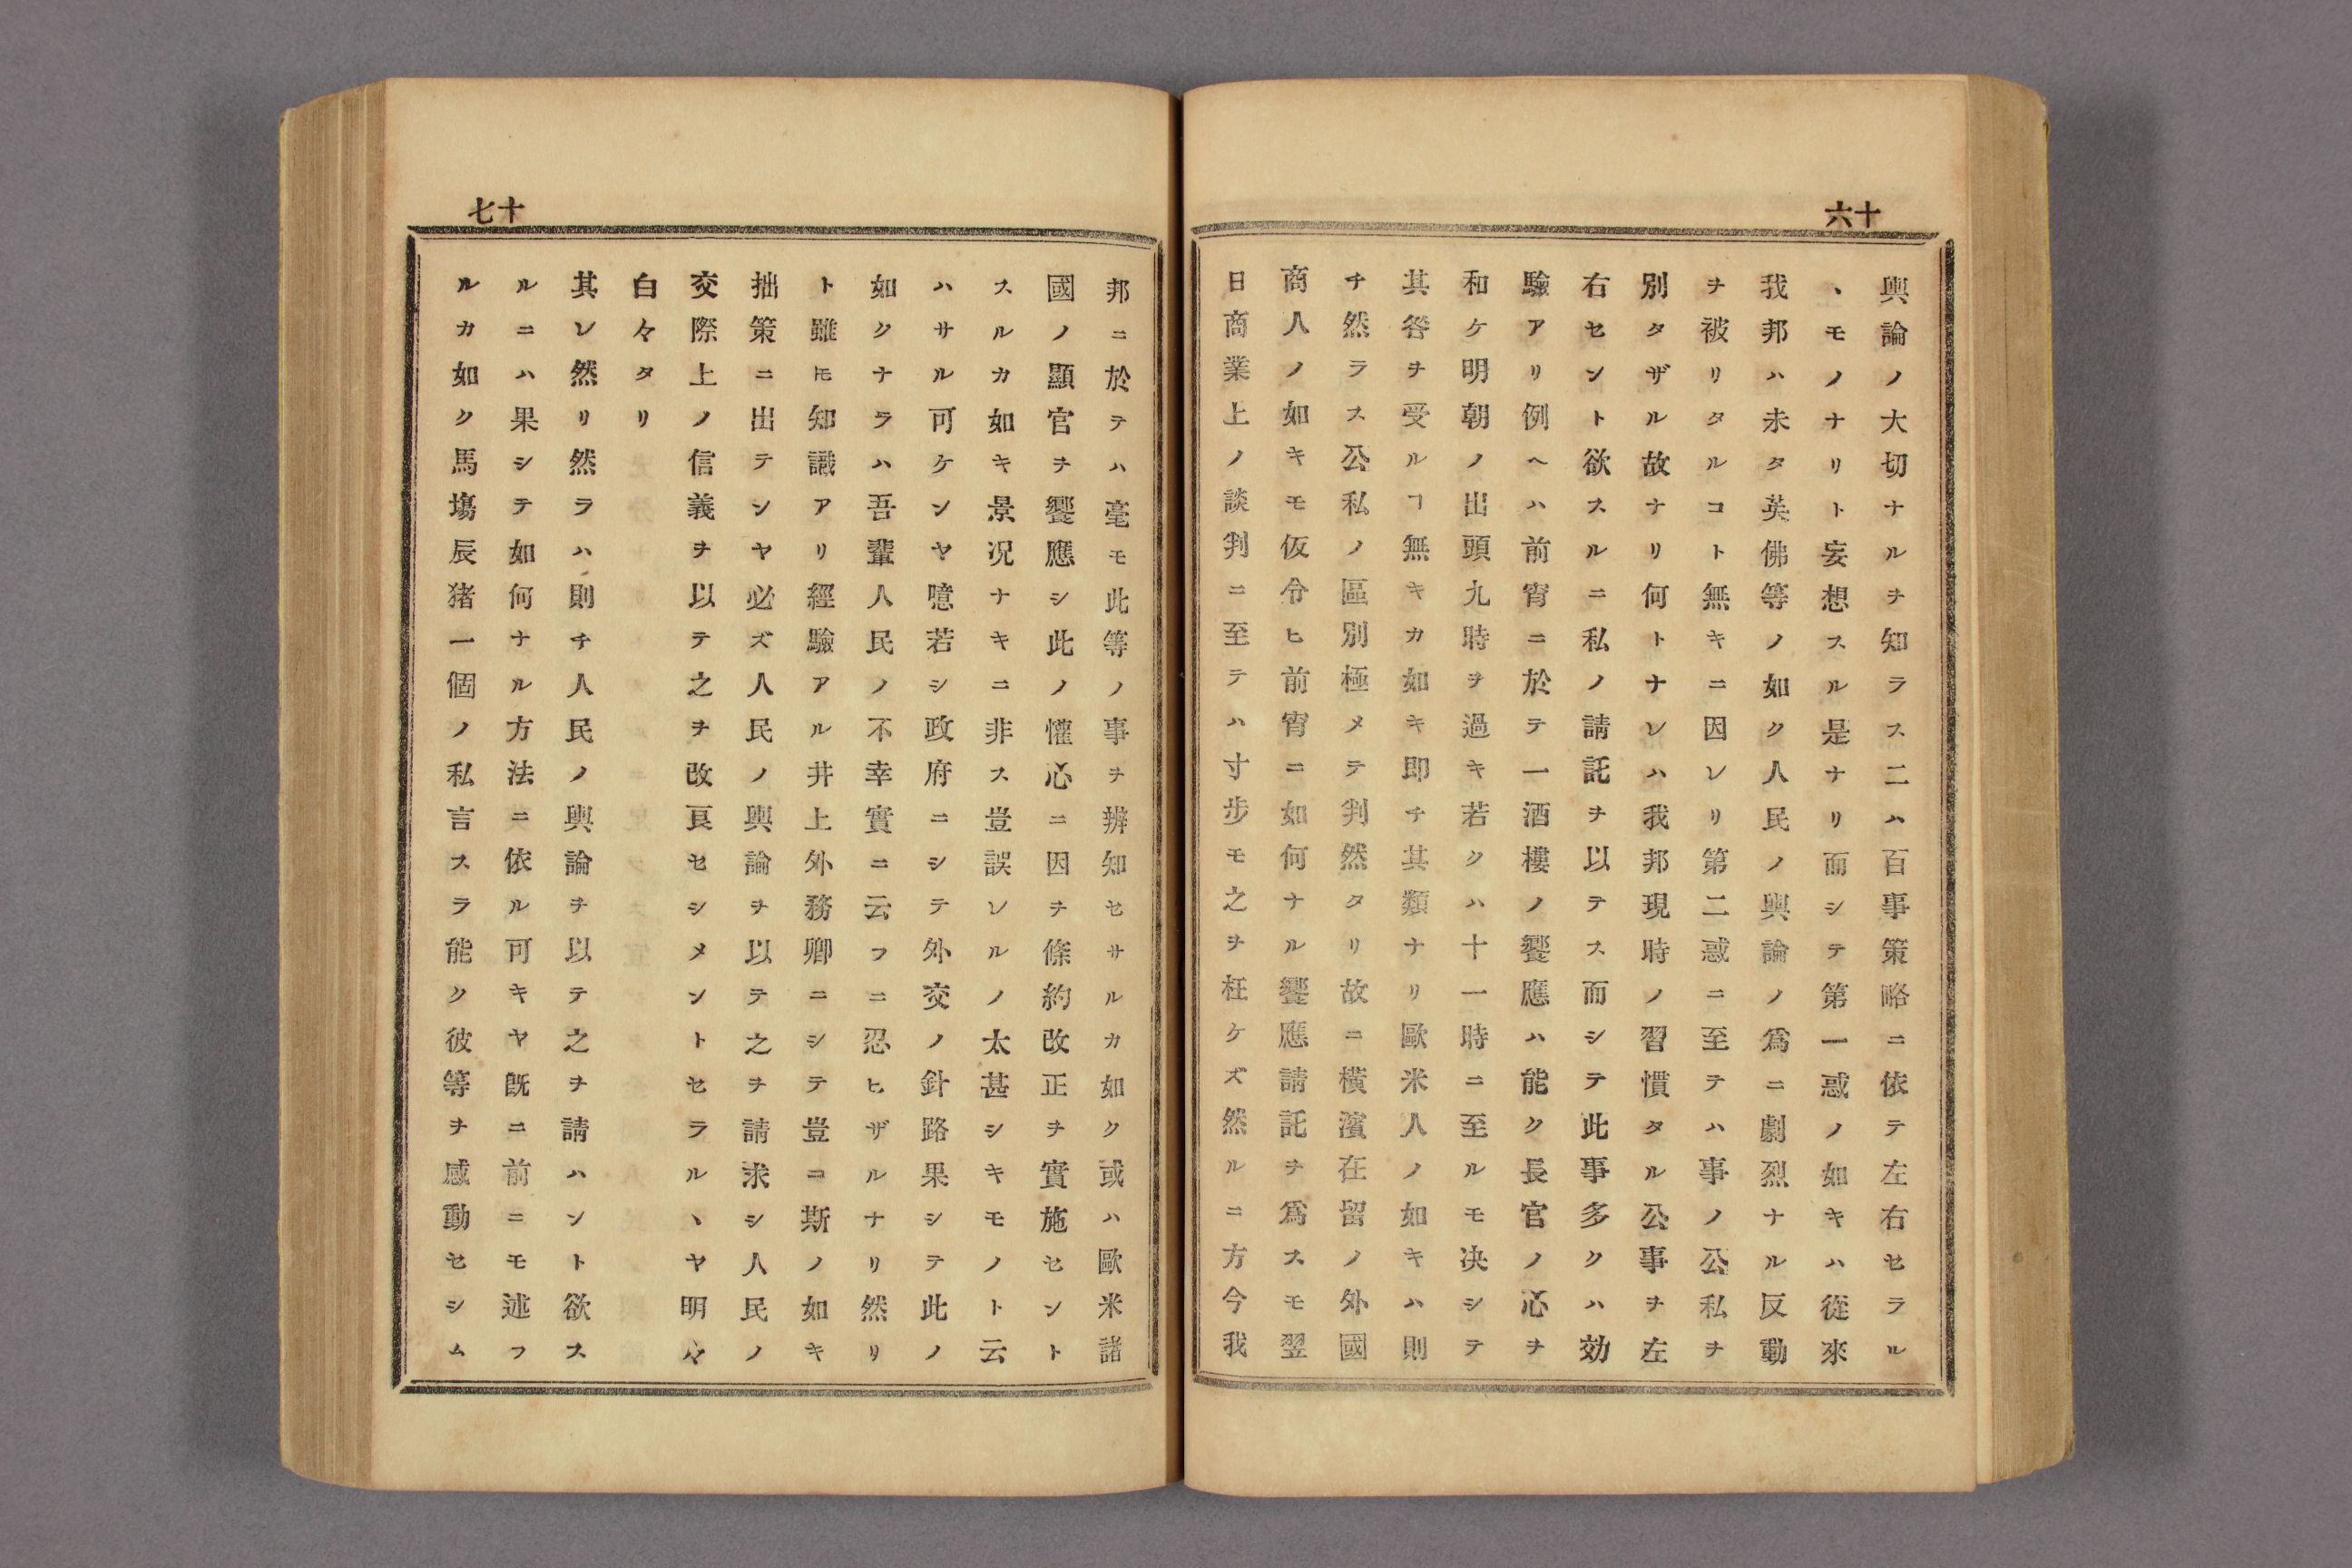 十六
輿論ノ大切ナルヲ知ラス二ハ百事策略ニ依テ左右セラル
ヽモノナリト妄想スル是ナリ而シテ第一惑ノ如キハ從來
我邦ハ未タ英佛等ノ如ク人民ノ輿論ノ爲ニ劇烈ナル反動
ヲ被リタルコト無キニ因レリ第二惑ニ至テハ事ノ公私ヲ
別タザル故ナリ何トナレハ我邦現時ノ習慣タル公事ヲ左
右セント欲スルニ私ノ請託ヲ以テス而シテ此事多クハ効
驗アリ例ヘハ前宵ニ於テ一酒樓ノ饗應ハ能ク長官ノ心ヲ
和ケ明朝ノ出頭九時ヲ過キ若クハ十一時ニ至ルモ决シテ
其咎ヲ受ルヿ無キカ如キ即チ其類ナリ歐米人ノ如キハ則
チ然ラス公私ノ區別極メテ判然タリ故ニ横濱在留ノ外國
商人ノ如キモ仮令ヒ前宵ニ如何ナル饗應請託ヲ爲スモ翌
日商業上ノ談判ニ至テハ寸步モ之ヲ枉ケズ然ルニ方今我
十七
邦ニ於テハ毫モ此等ノ事ヲ辨知セサルカ如ク或ハ歐米諸
國ノ顯官ヲ饗應シ此ノ懽心ニ因チ條約改正ヲ實施セント
スルカ如キ景况ナキニ非ス豈誤レルノ太甚シキモノト云
ハサル可ケンヤ噫若シ政府ニシテ外交ノ針路果シテ此ノ
如クナラハ吾輩人民ノ不幸實ニ云フニ忍ヒザルナリ然リ
ト雖𪜈知識アリ經驗アル井上外務卿ニシテ豈コ斯ノ如キ
拙策ニ出テンヤ必ズ人民ノ輿論ヲ以テ之ヲ請求シ人民ノ
交際上ノ信義ヲ以テ之ヲ改良セシメントセラルヽヤ明々
白々タリ
其レ然リ然ラハ則チ人民ノ輿論ヲ以テ之ヲ請ハント欲ス
ルニハ果シテ如何ナル方法ニ依ル可キヤ既ニ前ニモ述フ
ルカ如ク馬塲辰猪一個ノ私言スラ能ク彼等ヲ感動セシム